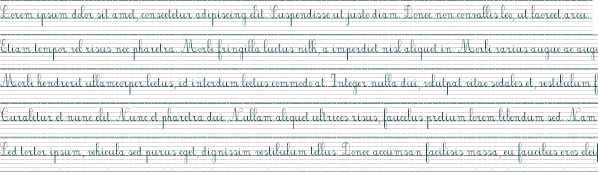 Lorem ipsum dolor sit amet, consectetur adipiscing elit. Suspendisse ut justo diam. Donec non convallis leo, ut laoreet arcu.
Etiam tempor vel risus nec pharetra. Morbi fringilla luctus nibh, a imperdiet nisl aliquet in. Morbi varius augue ac augu
Morbi hendrerit ullamcorper lectus, id interdum lectus commodo at. Integer nulla dui, volutpat vitae sodales et, vestibulum f
Curabitur et nunc elit. Nunc et pharetra dui. Nullam aliquet ultrices risus, faucibus pretium lorem bibendum sed. Nam
Sed tortor ipsum, vehicula sed purus eget, dignissim vestibulum tellus. Donec accumsan facilisis massa, eu faucibus eros elei